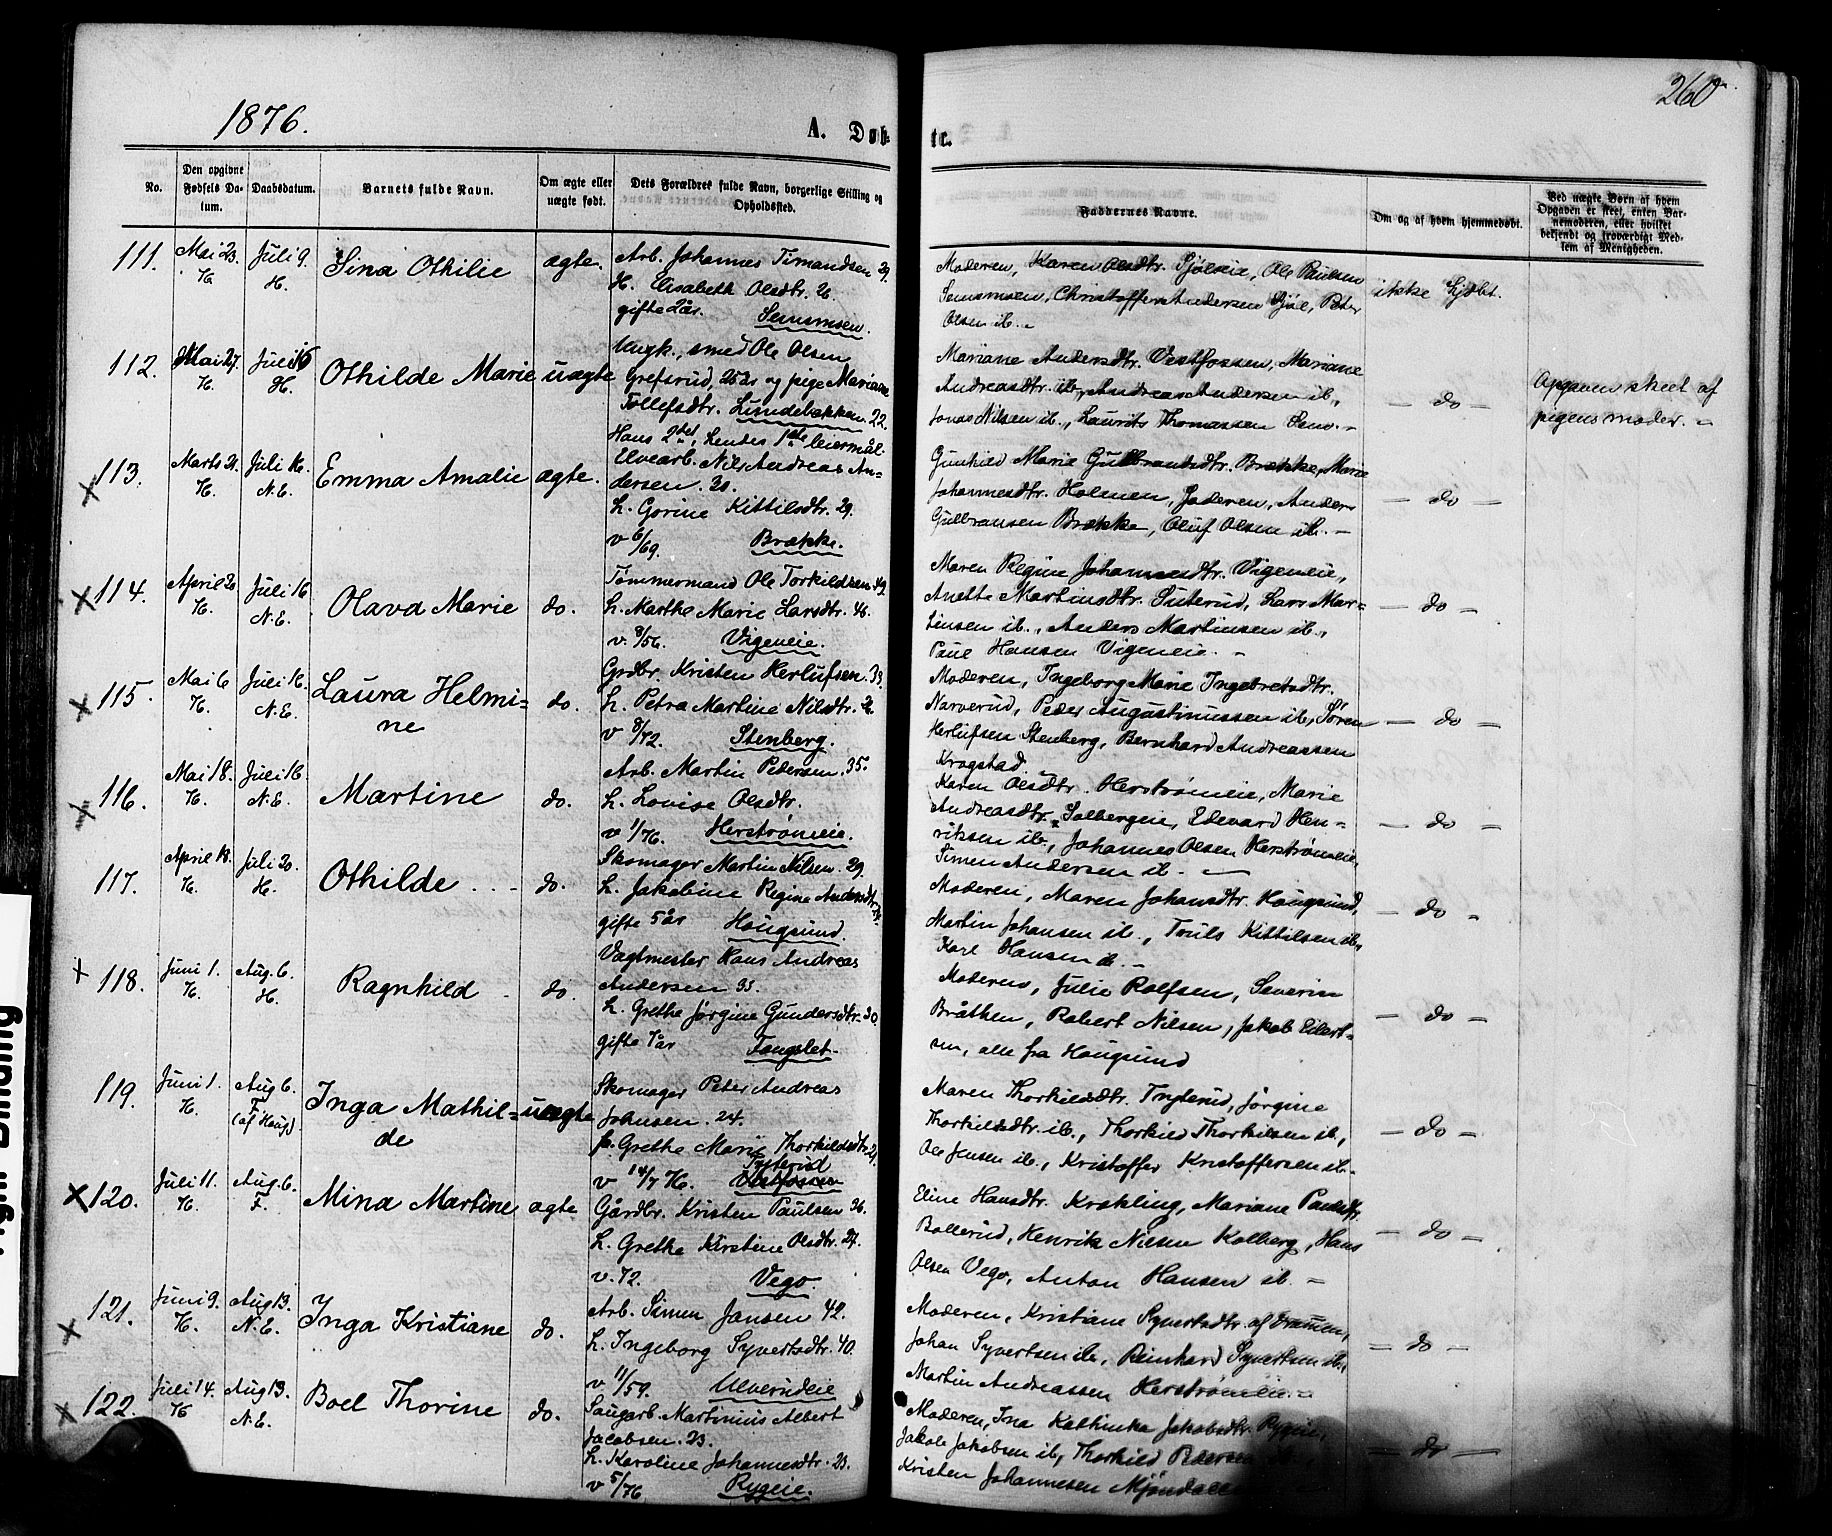 1876.
260
A. Døb-
te.
No.
Den opgivne Fødsels Datum.
Daabsdatum.
Barnets fulde Navn.
Om ægte eller uægte født.
Dets Forældres fulde Navn, borgerlige Stilling og Opholdssted.
Faddernes Navne.
Om og af hvem hjemmedøbt.
Ved uægte Børn af hvem Opgaven er skeet, enten Barnemoderen, eller hvilket bekjendt og troværdigt Medlem af Menigheden.
111. Mai 23. H. Juli 9. H. Sina Othilie ægte.
Arb. Johannes Timandsen 29.
H. Elisabeth Olsdtr. 26
gifte 2 år. Semsmsen.
Moderen, Karen Olsdtr. Sjöleie, Ole Paulsen
Semsmsen, Christoffer Andersen Sjöl, Peter
Olsen ib. -
ikke Hjdbt.
112. Mai 27. H. Juli 16 H. Othilde Marie uægte
Ungk., smed Ole Olsen
Grefsrud, 25 år og pige Mariane
Tollefsdtr. Lundebakken 22.
Hans 2det, hendes 1ste leiermål.
Mariane Andersdtr. Vestfossen, Mariane
Andreasdtr. ib, Andreas Andersen ib,
Jonas Nilsen ib., Laurits Thomassen Sem. -
- do -
Opgaven skeet af
pigens moder. -
113. Marts 21. H. Juli 16. N.E. Emma Amalie ægte.
Elvearb. Nils Andreas An-
dersen. 30.
h. Gorine Kittilsdtr. 29.
v 6/69. Brække.
Gunhild Marie Gulbrandsdtr. Brække, Marie
Johannesdtr. Holmen, Faderen, Anders
Gulbransen Brække, Oluf Olsen ib. -
- do -
114. April 20 H. Juli 16 N.E. Olava Marie do.
Tømmermand Ole Torkildsen 49.
h. Marthe Marie Larsdtr. 46.
v. 8/56. Vigeneie.
Maren Regine Johannesdtr. Vigeneie,
Anette Martinsdtr. Suterud, Lars Mar-
tinsen ib., Anders Martinsen ib.,
Paul Hansen Vigeneie. -
- do -
115. Mai 6 H. Juli 16. N.E. Laura Helmi-
ne do.
Grdbr. Kristen Herlufsen. 33.
h. Petra Martine Nilsdtr.
v 9/72. Stenberg.
Moderen, Ingeborg Marie Ingebretsdtr.
Narverud, Peder Augustinussen ib, Søren
Herlufsen Stenberg, Bernhard Andreassen
Krogstad
- do -
116. Mai 18. H. Juli 16. N.E. Martine do.
Arb. Martin Petersen. 35.
h. Lovise Olsdtr.
v 1/76. Herstrømeie.
Karen Olsdtr. Herstrømeie, Marie
Andreasdtr. Solbergeie, Edevard Hen-
riksen ib., Johannes Olsen Herstrømeie.
Simen Andersen ib. -
- do -
117. April 18. H. Juli 20. H. Othilde do.
Skomager Martin Nilsen. 29.
h. Jakobine Regine Andersdtr
gifte 5 år Hougsund.
Moderen, Maren Johansdtr. Hougsund,
Martin Johansen ib., Truls Kittilsen ib,
Karl Hansen ib. -
- do -
118. Juni 1. H. Aug. 6. H. Ragnhild do.
Vagtmester Hans Andreas
Andersen 35.
h. Grethe Jørgine Gundersdtr. 30.
gifte 7 år Fougslet.
Moderen, Julie Rolfsen, Severin
Bråthen, Robert Nilsen, Jakob Eilert-
sen, alle fra Hougsund
- do -
119. Juni 1. H. Aug 6. F. (af Hougs) Inga Mathil-
de uægte
Skomager Peter Andreas
Johnsen. 24.
p. Grethe Marie Thorkildsdtr 21.
Tryterud
v 14/7 76. Vestfossen
Maren Thorkildsdtr. Tryterud, Jørgine
Thorkildsdtr. ib., Thorkild Thorkilsen ib.,
Ole Jensen ib., Kristoffer Kristoffersen ib. -
- do -
120. Juli 11. H. Aug. 6. F. Mina Martine ægte
Gårdbr. Kristen Paulsen 36.
h. Grethe Kirstine Olsdtr. 27.
v. 72. Vego.
Eline Hansdtr. Krekling, Mariane Paulsdtr.
Bollerud, Henrik Nilsen Kolberg, Hans
Olsen Vego, Anton Hansen ib. -
- do -
121. Juni 9. H. Aug 13. N.E. Inga Kristiane do.
Arb. Simen Jansen 42.
h. Ingeborg Syvertsdtr. 40.
v. 11/59. Ulverudeie
Moderen, Kristiane Syvertsdtr. af Drammen,
Johan Syvertsen ib., Reinhard Syvertsen ib.,
Martin Andreassen Herstrømeie. -
- do -
122. Juli 14. H Aug 13. N.E. Boel Thorine do.
Saugarb. Martinius Albert
Jacobsen. 23.
h. Karoline Johannesdtr. 23.
v 5/76 Rygeie.
Moderen, Ina Kathinka Jakobsdtr. Rygeie,
Jakob Jakobsen ib, Thorkild Pedersen
Kristen Johannesen Mjøndalen
- do -